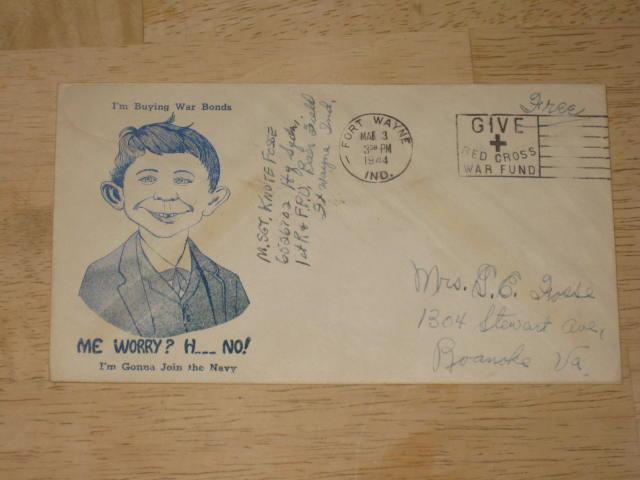 I'm Buying War Bonds
ME WORRY? H___ NO!
I'm Gonna Join the Navy
M. SGT. KNUTE FOSSE
6586702 Hq Sqdn,
1st R & F.P.D. Baer Field
Ft Wayne Ind,
FORT WAYNE
MAR 3
3 30 PM
1944
IND.
Free
GIVE
RED CROSS
WAR FUND
Mrs. E. Fosse
1304 Stewart Ave,
Roanoke Va.